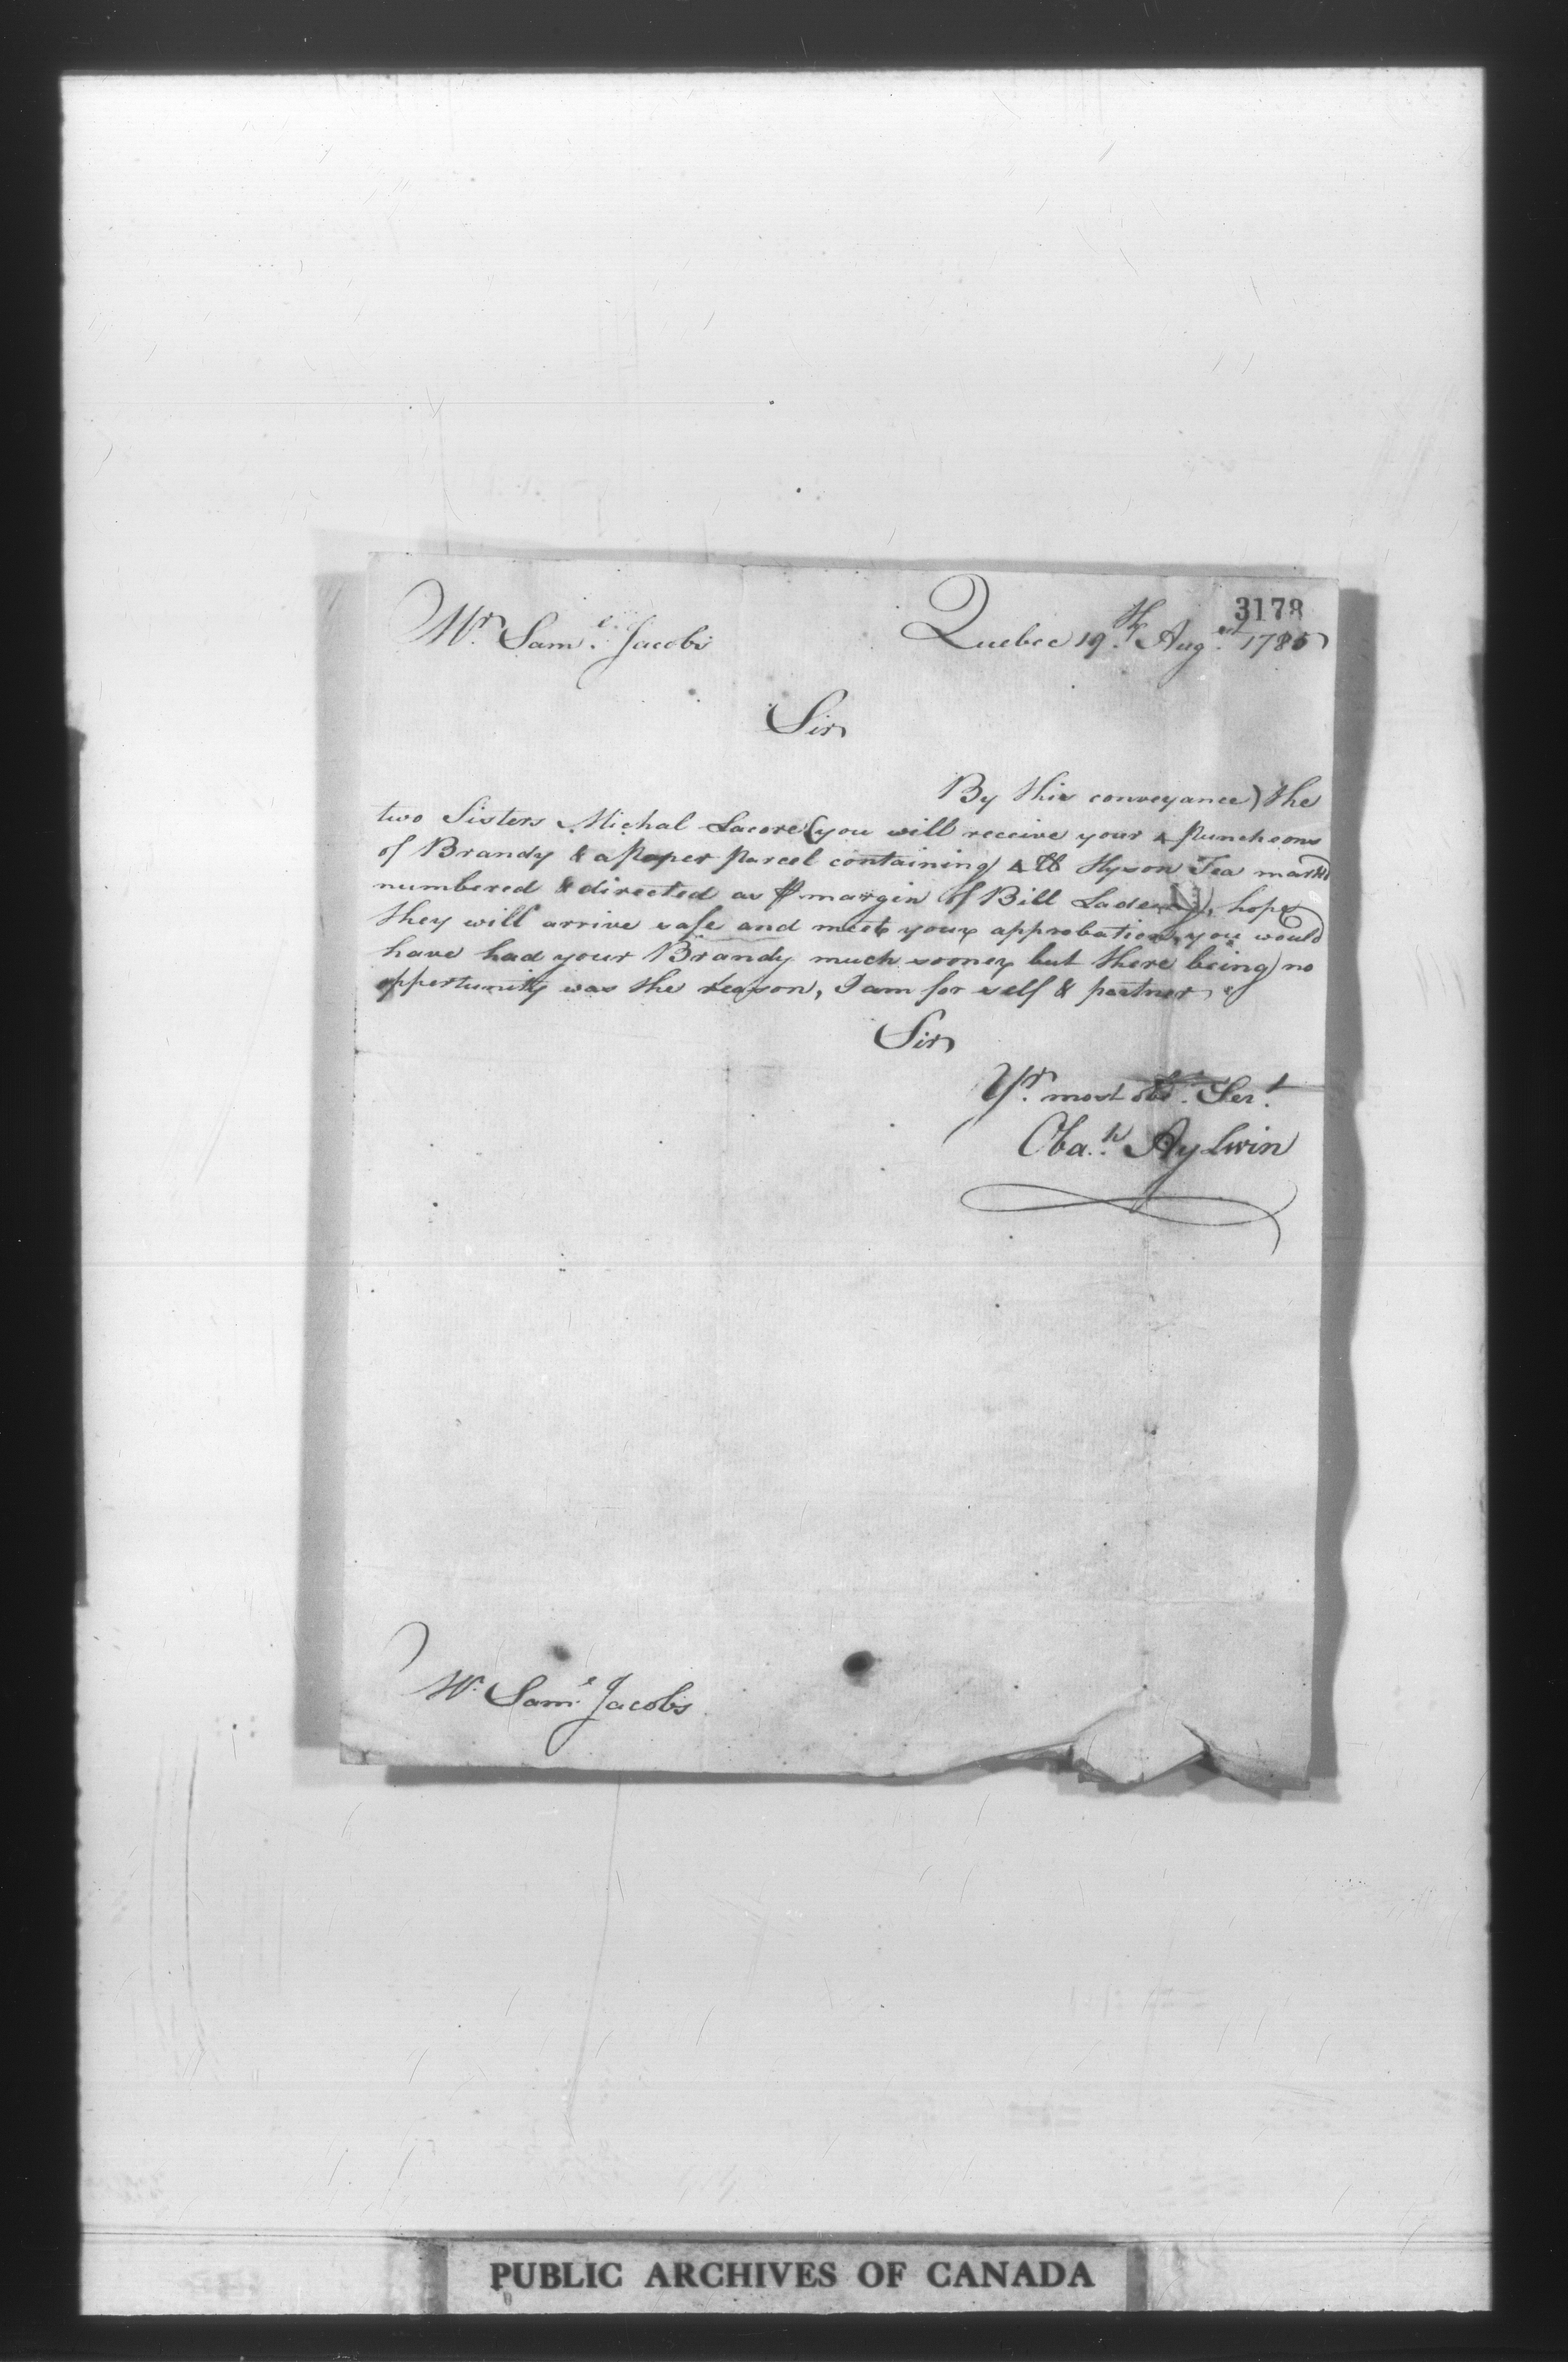 3178
Mr. Saml. Jacobs
Quebec 19th. Augst. 1785
Sir
By this conveyance) the
two Sisters Michal Lacore (you will receive your 4 Puncheons
of Brandy & a Paper Parcel containing 4 lb Hyson Tea markd
numbered & directed as ⅌ margin of Bill Ladeing, hope
they will arrive safe and meet your approbation, you would
have had your Brandy much sooner but there being no
oppertunity was the reason, I am for self & partner
Sir
Yr. most obt. Sert.
Obah. Aylwin
Mr. Saml. Jacobs
PUBLIC ARCHIVES OF CANADA